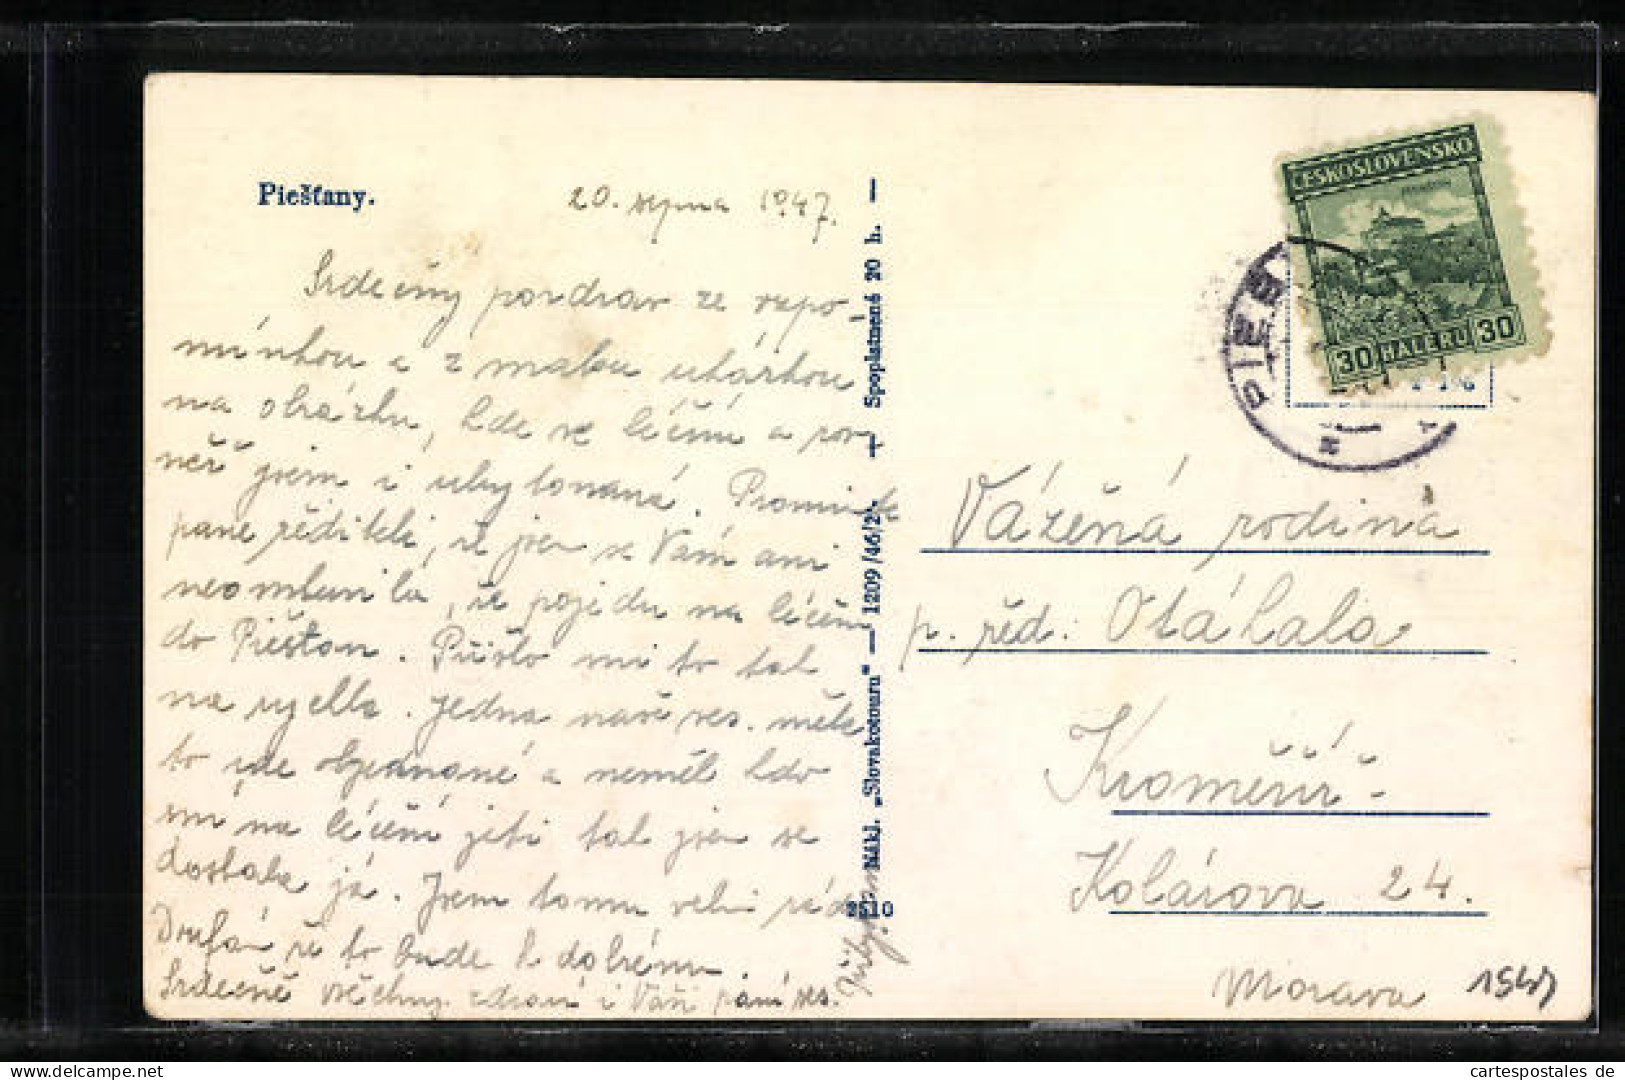 Piešťany.
20. srpna 1947.
Srdečný pozdrav ze vzpo-
mínkou a z malou ukázkou
na obrázku, kde se léčím a pov
něž jsem i ubytovaná. Promiňte
pane řediteli, že jsem se Vám ani
neomluvila, že pojedu na léčení
do Piešťan. Přišlo mi to tak
na rychlo. Jedna naše ses. měla
to zde objednané a neměl kdo
na léčení jeti tak jsem se
dostala já. Jsem tomu velmi ráda
Doufám že to bude k dobrému.
Srdečně všechny zdraví i Vaši paní ses.
Nákl. „Slovakotouru" — 1209/46/2. — Spoplatnené 20 h. —
3510
ČESKOSLOVENSKO
30 HALÉŘŮ 30
PIEŠ
Vážená rodina
p. řed. Otáhala
Kroměříž -
Kolárova 24.
Morava
cartespostales.de
cartespostales de